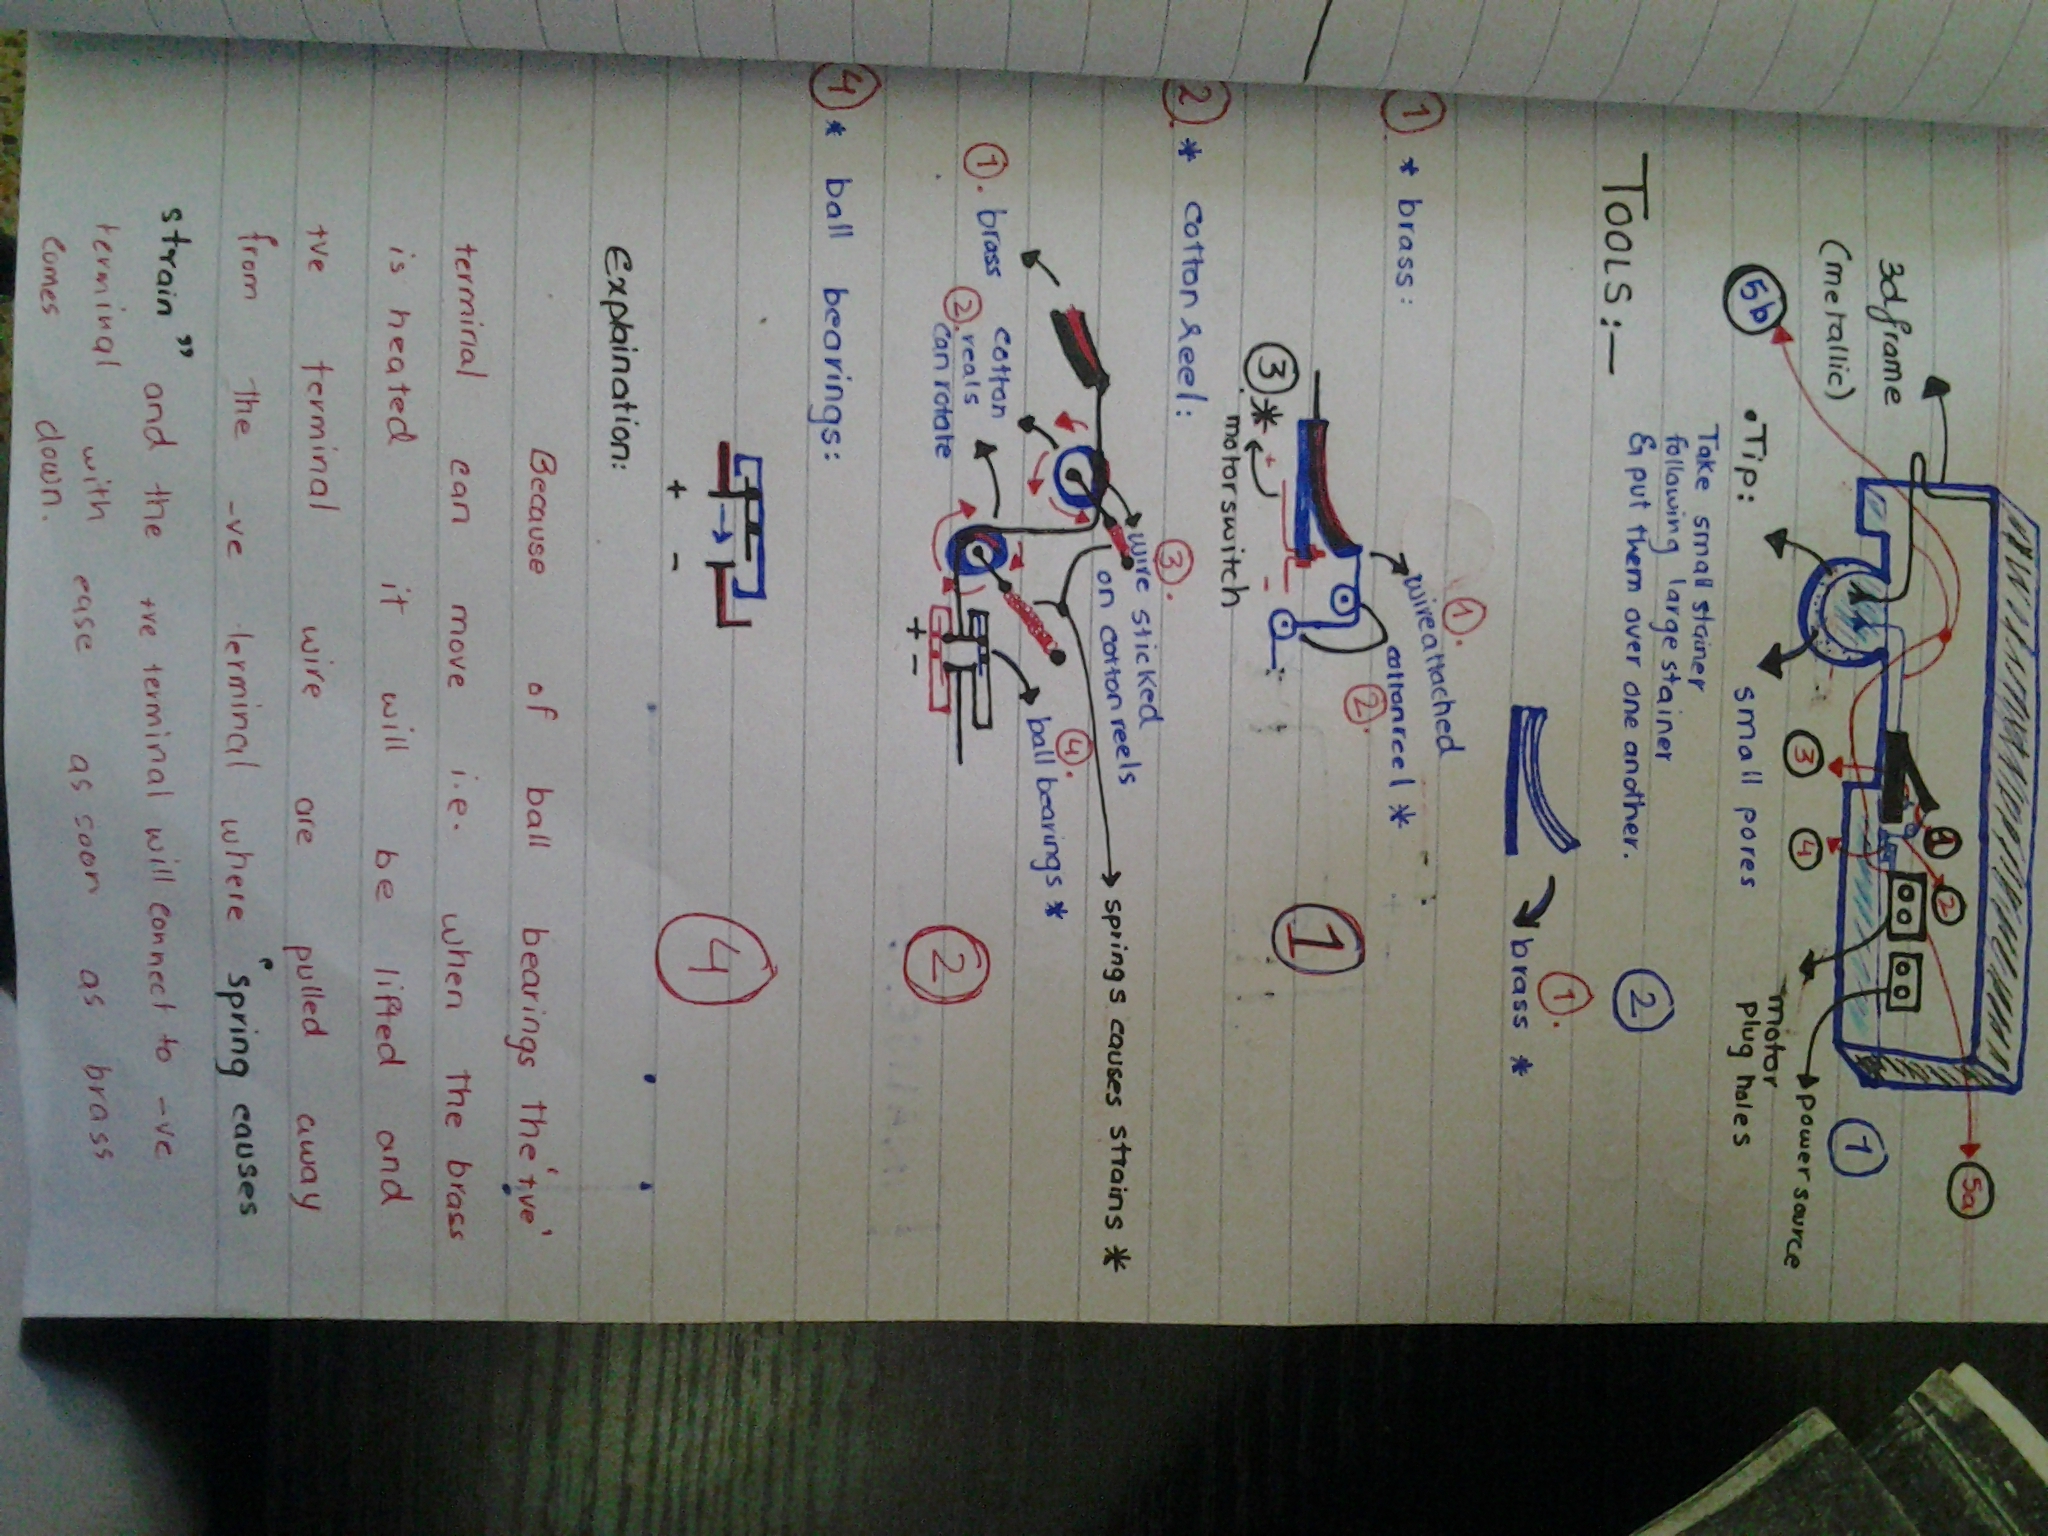 3d frame
(metallic)
5b
5a
1
2
3
4
power source
motor
plug holes
1
• Tip:
small pores
Take small stainer
following large stainer
& put them over one another.
2
TOOLS:—
1. * brass:
1.
brass *
1.
wire attached
cotton reel *
2.
3 *
+ -
motor switch
1
2. * cotton reel:
3.
wire sticked
on cotton reels
springs causes strains *
1. brass
cotton
2. reals
can rotate
4.
ball bearings *
+ -
2
4 * ball bearings:
+ -
4
Explaination:
Because of ball bearings the '+ve'
terminal can move i.e. when the brass
is heated it will be lifted and
+ve terminal wire are pulled away
from the -ve terminal where "spring causes
strain" and the +ve terminal will connect to -ve
terminal with ease as soon as brass
comes down.